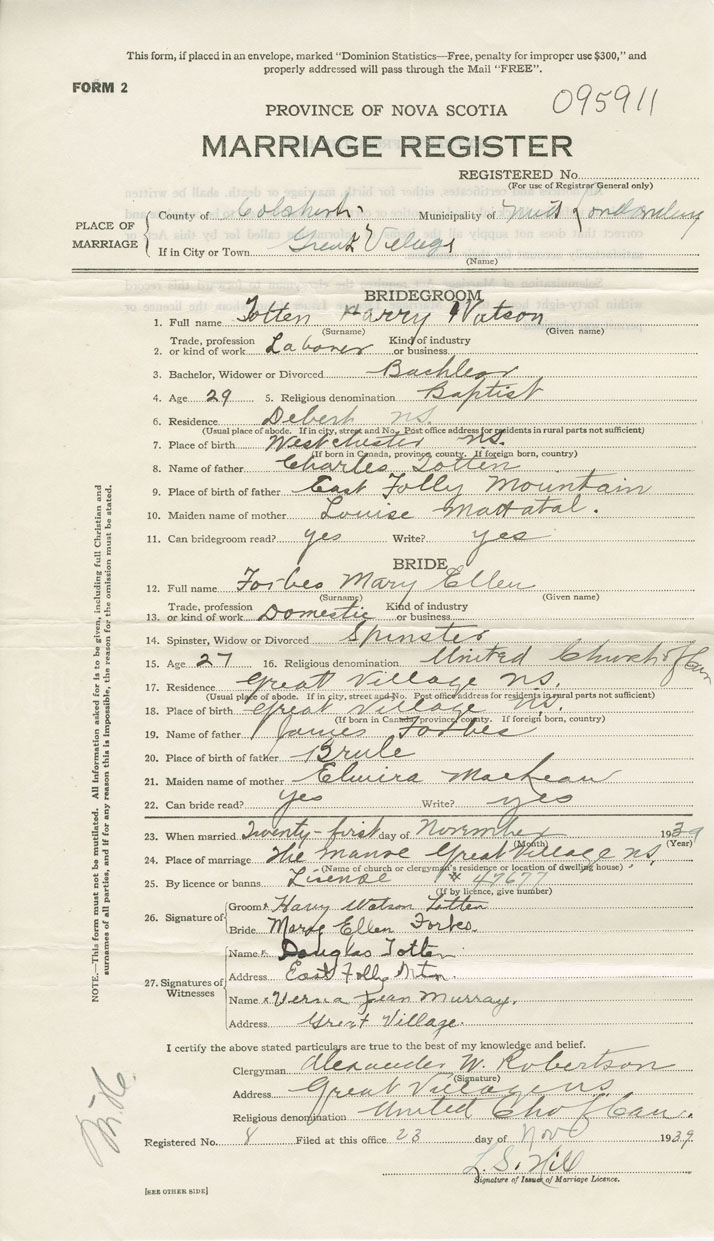 This form, if placed in an envelope, marked "Dominion Statistics—Free, penalty for improper use $300," and
properly addressed will pass through the Mail "FREE".
FORM 2
095911
PROVINCE OF NOVA SCOTIA
MARRIAGE REGISTER
REGISTERED No.
(For use of Registrar General only)
PLACE OF MARRIAGE
County of Colchester Municipality of
If in City or Town Great Village
(Name)
BRIDEGROOM
1. Full name Totten Harry Watson
(Surname) (Given name)
2. Trade, profession or kind of work Laborer Kind of industry or business
3. Bachelor, Widower or Divorced Bachleor
4. Age 29 5. Religious denomination Baptist
6. Residence Debert N.S.
(Usual place of abode. If in city, street and No. Post office address for residents in rural parts not sufficient)
7. Place of birth Westchester N.S.
(If born in Canada, province, county. If foreign born, country)
8. Name of father Charles Totten
9. Place of birth of father East Folly Mountain
10. Maiden name of mother Louise Mattatal.
11. Can bridegroom read? yes Write? yes
BRIDE
12. Full name Forbes Mary Ellen
(Surname) (Given name)
13. Trade, profession or kind of work Domestic Kind of industry or business
14. Spinster, Widow or Divorced Spinster
15. Age 27 16. Religious denomination United Church of Can
17. Residence Great Village N.S.
(Usual place of abode. If in city, street and No. Post office address for residents in rural parts not sufficient)
18. Place of birth Great Village N.S.
(If born in Canada, province, county. If foreign born, country)
19. Name of father James Forbes
20. Place of birth of father Brule
21. Maiden name of mother Elmira MacLean
22. Can bride read? yes Write? yes
23. When married Twenty-first day of November 1939
(Month) (Year)
24. Place of marriage The Manse Great Village N.S.
(Name of church or clergyman's residence or location of dwelling house)
25. By licence or banns License # 47677
(If by licence, give number)
26. Signature of
Groom Harry Watson Totten
Bride Mary Ellen Forbes
27. Signatures of Witnesses
Name Douglas Totten
Address East Folly Mtn.
Name Verna Jean Murray.
Address Great Village.
I certify the above stated particulars are true to the best of my knowledge and belief.
Clergyman Alexander W. Robertson
(Signature)
Address Great Village N.S.
Religious denomination United Ch of Can.
Registered No. 8 Filed at this office 23 day of Nov 1939
L. S. Hill
Signature of Issuer of Marriage Licence.
[SEE OTHER SIDE]
NOTE.—This form must not be mutilated. All information asked for is to be given, including full Christian and
surnames of all parties, and if for any reason this is impossible, the reason for the omission must be stated.